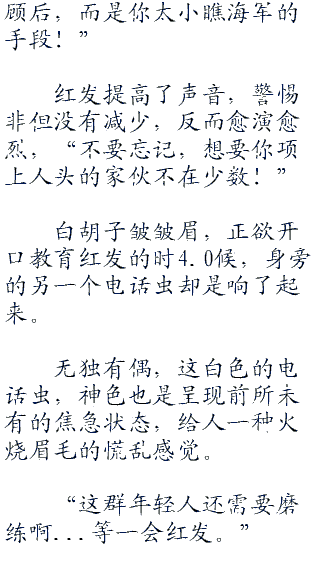 顾后，而是你太小瞧海军的
手段！”
红发提高了声音，警惕
非但没有减少，反而愈演愈
烈，“不要忘记，想要你项
上人头的家伙不在少数！”
白胡子皱皱眉，正欲开
口教育红发的时4.0候，身旁
的另一个电话虫却是响了起
来。
无独有偶，这白色的电
话虫，神色也是呈现前所未
有的焦急状态，给人一种火
烧眉毛的慌乱感觉。
“这群年轻人还需要磨
练啊...等一会红发。”